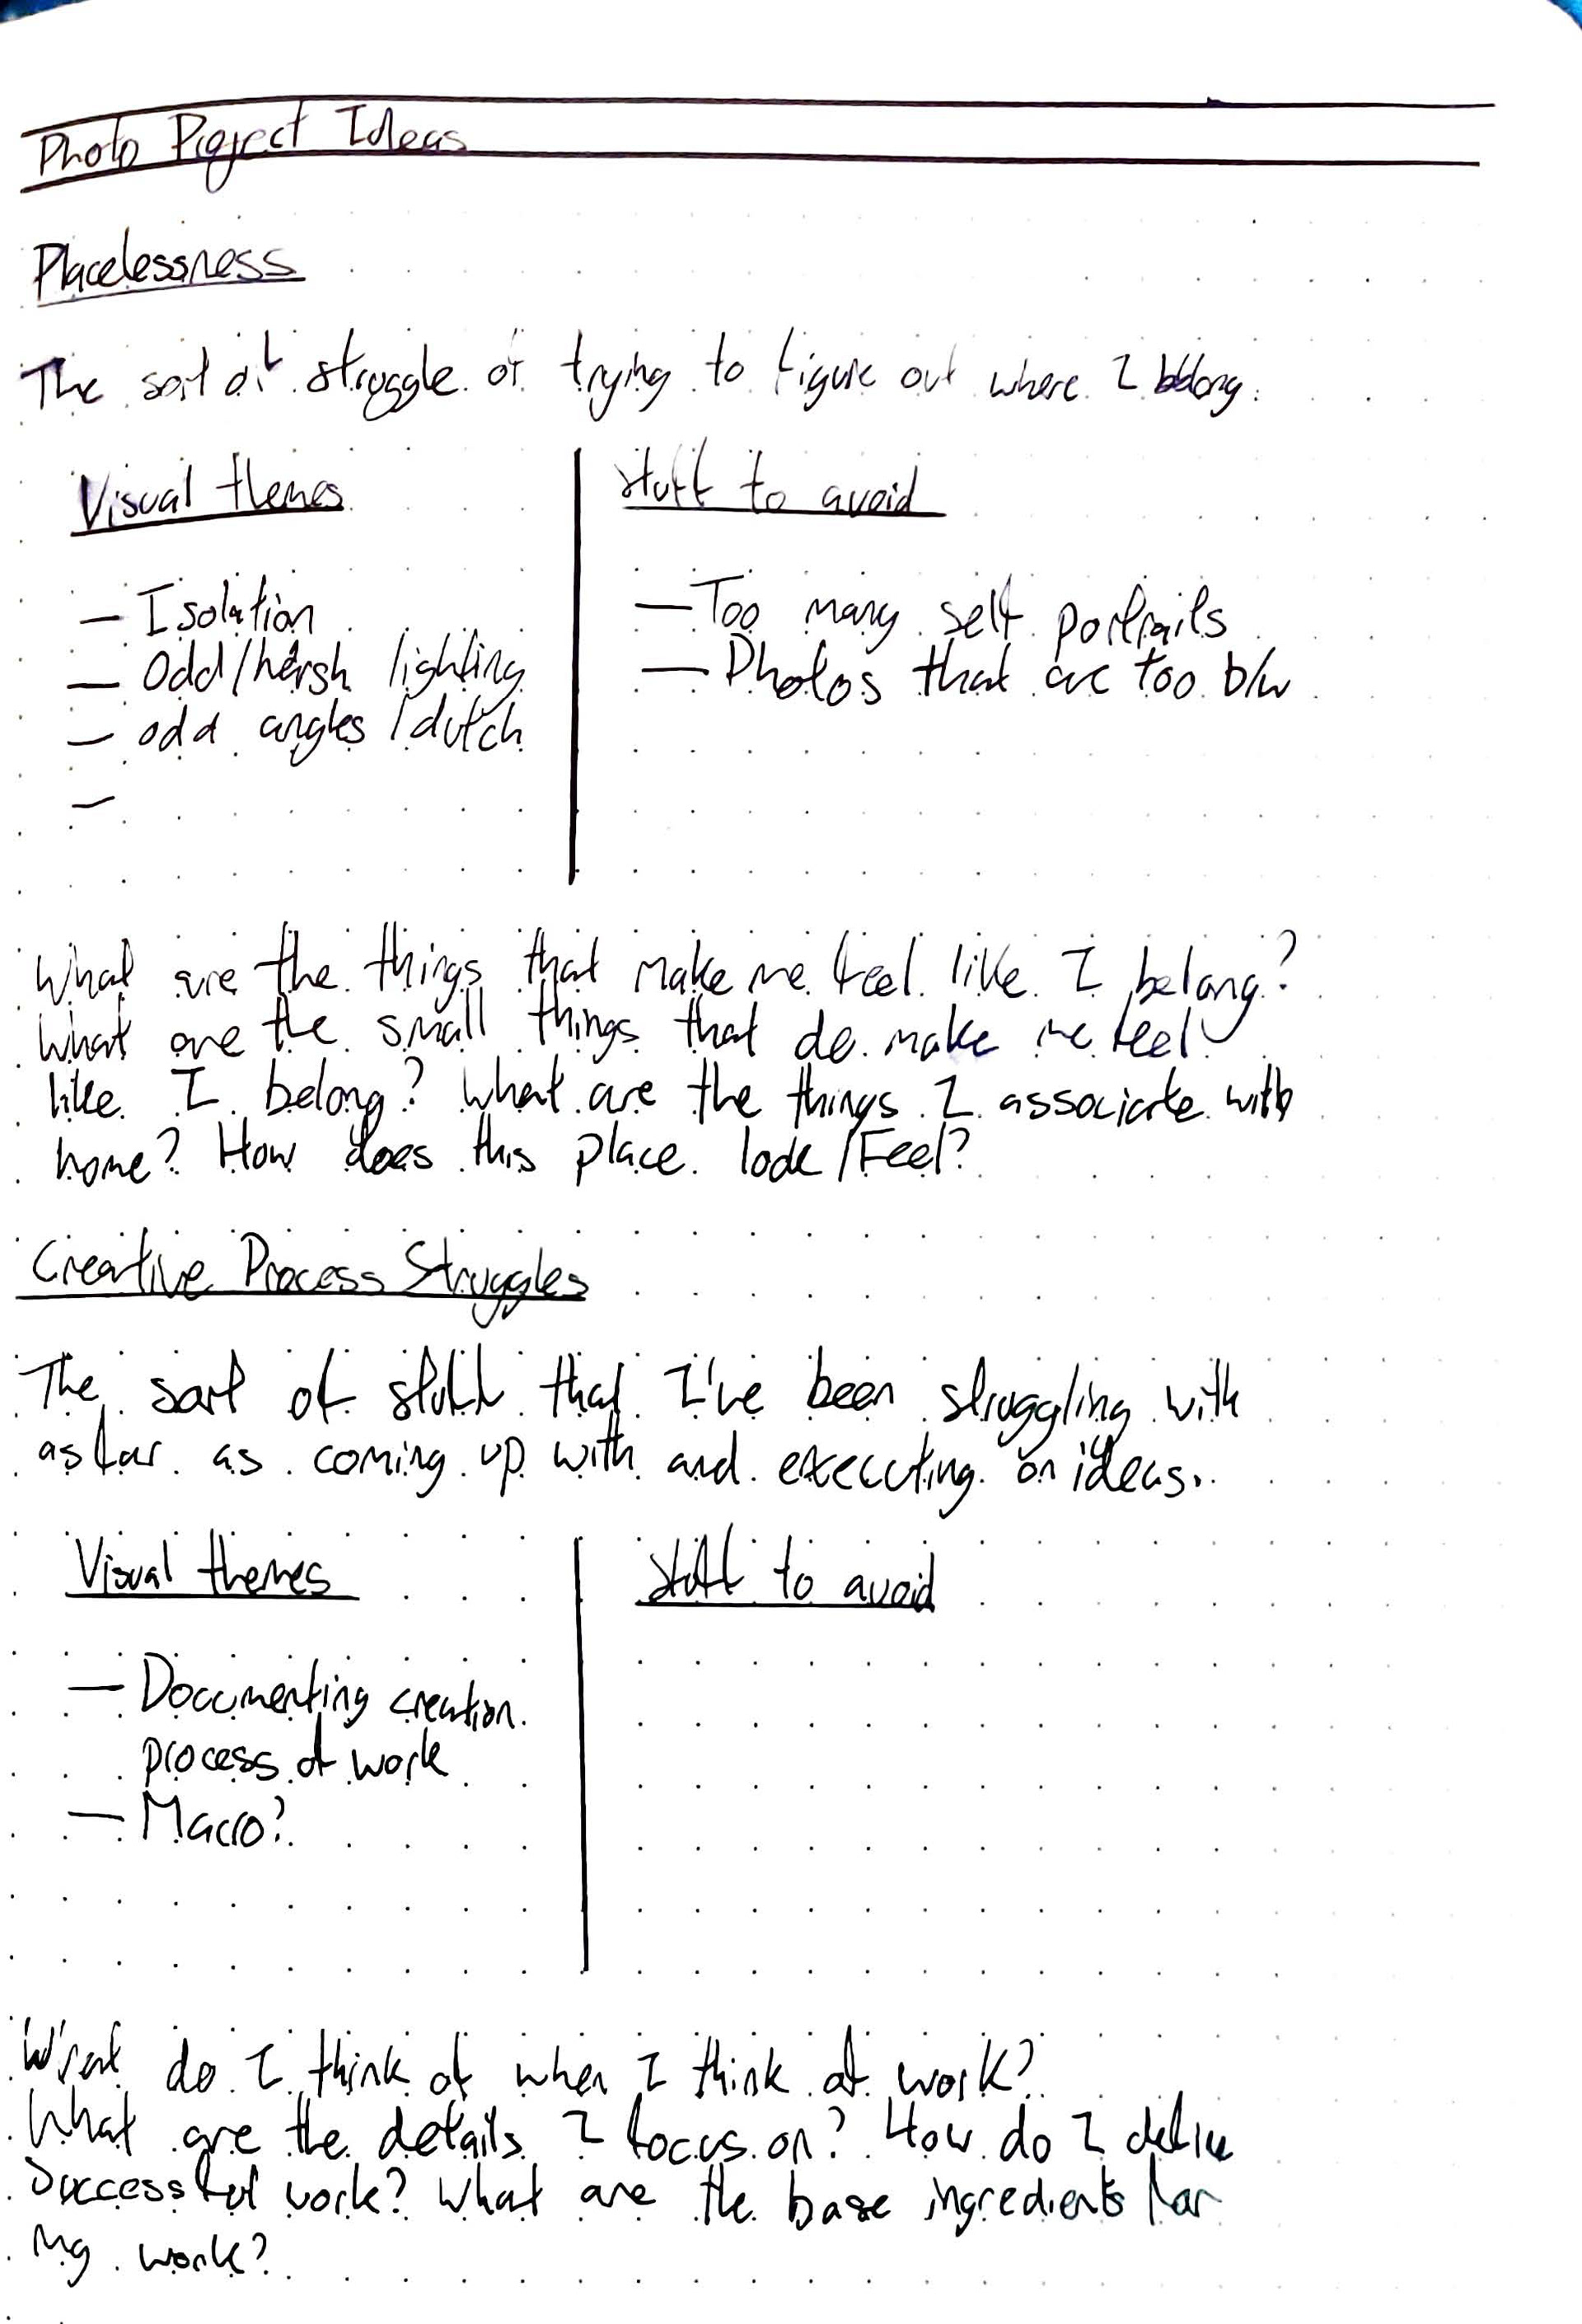 Photo Project Ideas
Placelessness
The sort of struggle of trying to figure out where I belong.
Visual themes
— Isolation
— Odd/harsh lighting
— odd angles /dutch
—
Stuff to avoid
— Too many self portraits
— Photos that are too b/w
What are the things that make me feel like I belong?
What are the small things that do make me feel
like I belong? What are the things I associate with
home? How does this place look/Feel?
Creative Process Struggles
The sort of stuff that I've been struggling with
as far as coming up with and executing on ideas.
Visual themes
— Documenting creation
process of work
— Macro?
Stuff to avoid
What do I think of when I think of work?
What are the details I focus on? How do I define
successful work? What are the base ingredients for
my work?